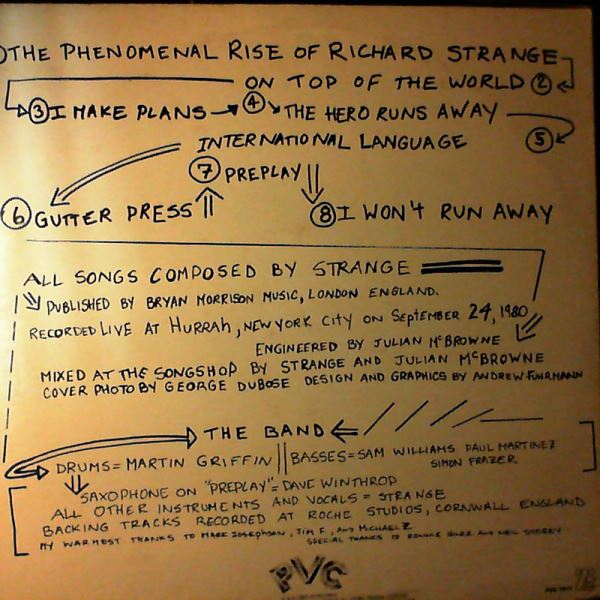 THE PHENOMENAL RISE OF RICHARD STRANGE
ON TOP OF THE WORLD ②
③ I MAKE PLANS ④ THE HERO RUNS AWAY
INTERNATIONAL LANGUAGE ⑤
⑦ PREPLAY
⑥ GUTTER PRESS ⑧ I WON'T RUN AWAY
ALL SONGS COMPOSED BY STRANGE
PUBLISHED BY BRYAN MORRISON MUSIC, LONDON ENGLAND.
RECORDED LIVE AT HURRAH, NEW YORK CITY ON SEPTEMBER 24, 1980
ENGINEERED BY JULIAN McBROWNE
MIXED AT THE SONGSHOP BY STRANGE AND JULIAN McBROWNE
COVER PHOTO BY GEORGE DUBOSE DESIGN AND GRAPHICS BY ANDREW FUHRMANN
THE BAND
DRUMS = MARTIN GRIFFIN || BASSES = SAM WILLIAMS PAUL MARTINEZ
SIMON FRAZER
SAXOPHONE ON "PREPLAY" = DAVE WINTHROP
ALL OTHER INSTRUMENTS AND VOCALS = STRANGE
BACKING TRACKS RECORDED AT ROCHE STUDIOS, CORNWALL ENGLAND
MY WARMEST THANKS TO MARK JOSEPHSON, TIM F., AND MICHAEL Z
SPECIAL THANKS TO AND NEIL STOREY.
PVC